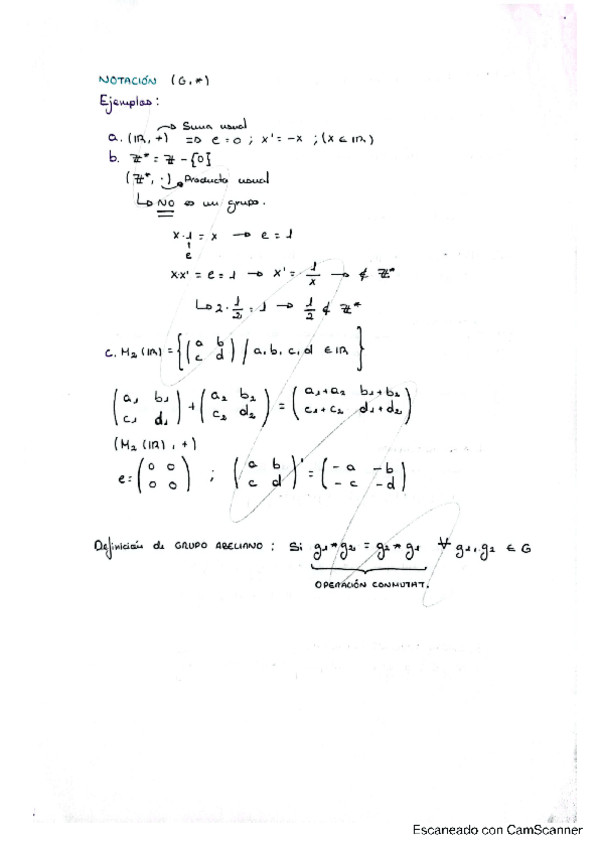 NOTACIÓN (G,*)
Ejemplos:
→ Suma usual
a. (ℝ, +) ⇒ e = 0 ; x' = -x ; (x ∈ ℝ)
b. ℤ* = ℤ - {0}
(ℤ*, ·) → Producto usual
↳ NO es un grupo.
x·1 = x → e = 1
e
x·x' = e = 1 → x' = 1/x → ∉ ℤ*
↳ 2·1/2 = 1 → 1/2 ∉ ℤ*
c. M₂(ℝ) = {(a b; c d) / a, b, c, d ∈ ℝ}
(a₁ b₁; c₁ d₁) + (a₂ b₂; c₂ d₂) = (a₁+a₂ b₁+b₂; c₁+c₂ d₁+d₂)
(M₂(ℝ), +)
e = (0 0; 0 0) ; (a b; c d)' = (-a -b; -c -d)
Definición de GRUPO ABELIANO: Si g₁*g₂ = g₂*g₁ ∀ g₁, g₂ ∈ G
OPERACIÓN CONMUTAT.
Escaneado con CamScanner